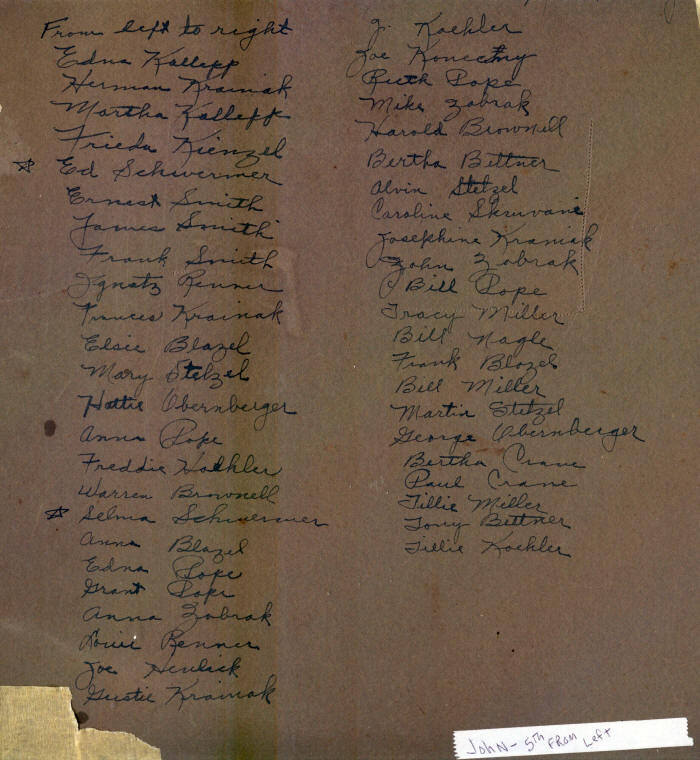 From left to right
Edna Kalepp
Herman Krainak
Martha Kallepp
Frieda Kienzel
☆ Ed Schwermer
Ernest Smith
James Smith
Frank Smith
Ignatz Renner
Frances Krainak
Elsie Blazel
Mary Stelzel
Hattie Obernberger
Anna Pope
Freddie Koehler
Warren Brownell
☆ Selma Schwermer
Anna Blazel
Edna Pope
Grant Pope
Anna Zabrak
Louie Renner
Joe
Gustie Krainak
J. Koehler
Joe Konectny
Ruth Pope
Mike Zabrak
Harold Brownell
Bertha Bittner
Alvin Stelzel
Caroline
Josephine Kraniak
John Zabrak
Bill Pope
Tracy Miller
Bill Nagle
Frank Blazel
Bill Miller
Martin Stelzel
George Obernberger
Bertha Crane
Paul Crane
Tillie Miller
Tony Bittner
Tillie Koehler
John - 5th FROM Left